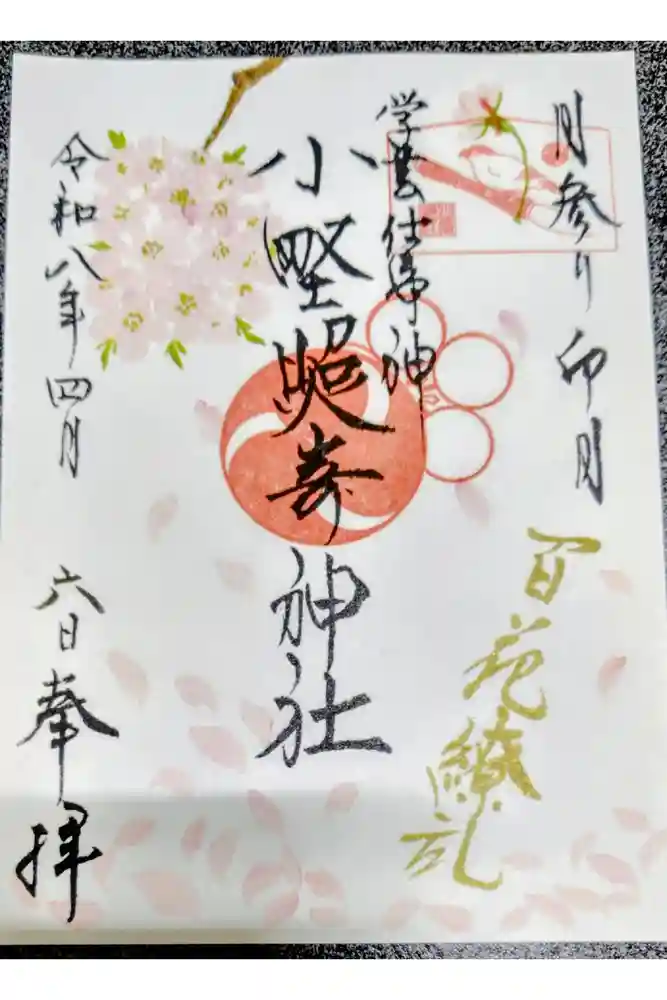 月参り 卯月
百花繚乱
学芸仕事神
小野照嵜神社
令和八年四月
六日奉拝